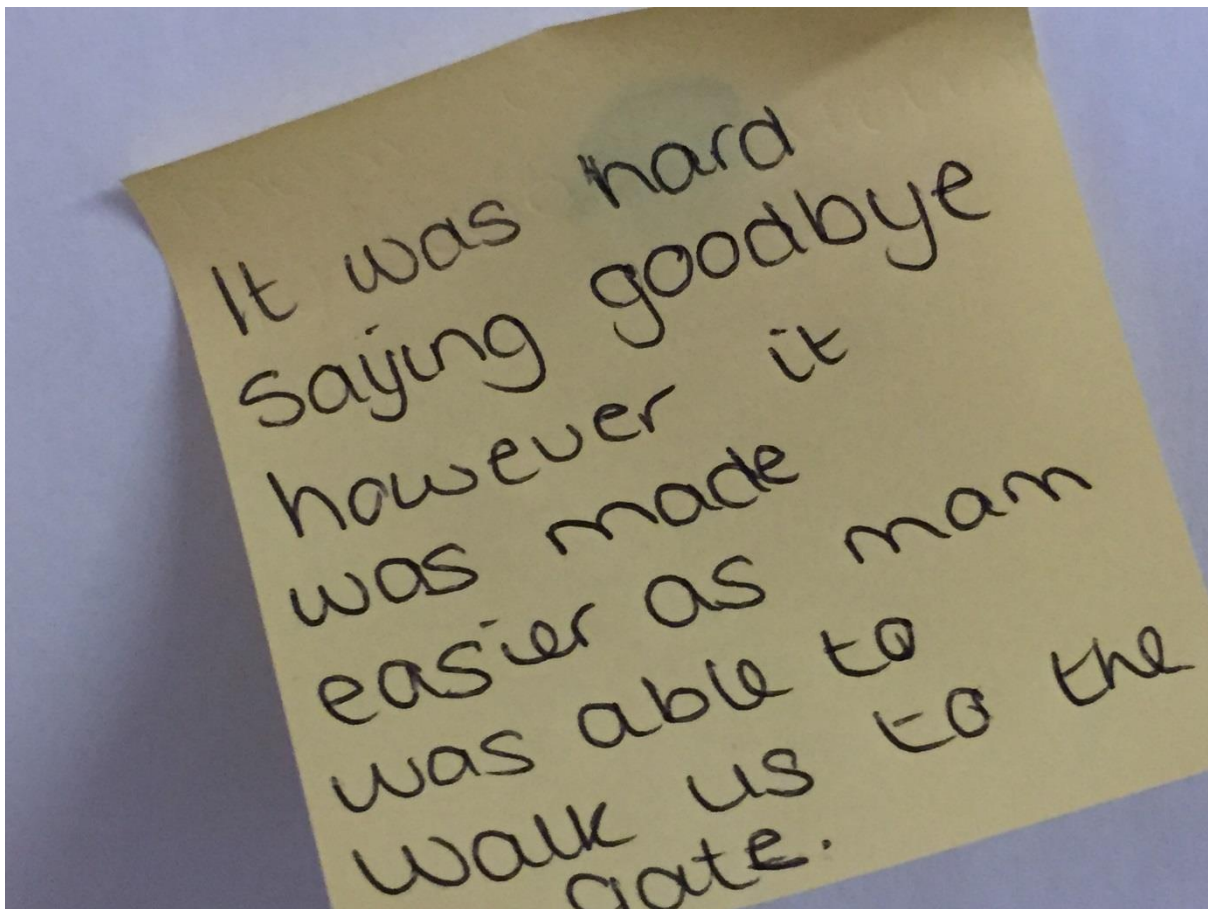 It was hard
saying goodbye
however it
was made
easier as mam
was able to
walk us to the
gate.